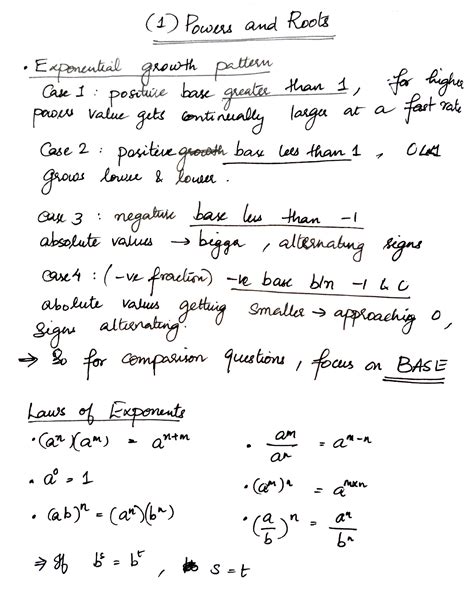 (1) Powers and Roots
• Exponential growth pattern
Case 1 : positive base greater than 1, for higher
power value gets continually larger at a fast rate
Case 2 : positive growth base less than 1,
grows lower & lower.
case 3 : negative base less than -1
absolute values → bigger, alternating signs
case 4 : (-ve fraction) -ve base b/n -1 &
absolute values getting smaller → approaching 0,
signs alternating.
⇒ So for comparison questions, focus on BASE
Laws of Exponents
• (aⁿ)(aᵐ) = aⁿ⁺ᵐ
• aᵐ/aⁿ = aᵐ⁻ⁿ
• a⁰ = 1
• (aᵐ)ⁿ = aᵐˣⁿ
• (ab)ⁿ = (aⁿ)(bⁿ)
• (a/b)ⁿ = aⁿ/bⁿ
⇒ If bˢ = bᵗ, s = t